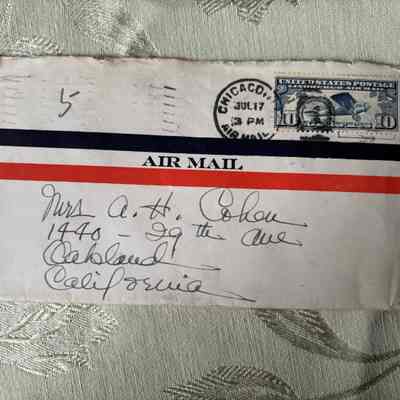 UNITED STATES POSTAGE
LINDBERGH AIR MAIL
10 10
CHICAGO
JUL 17
3 PM
AIR MAIL
5
AIR MAIL
Mrs A. H. Cohen
1440 - 29 th Ave
Oakland
California